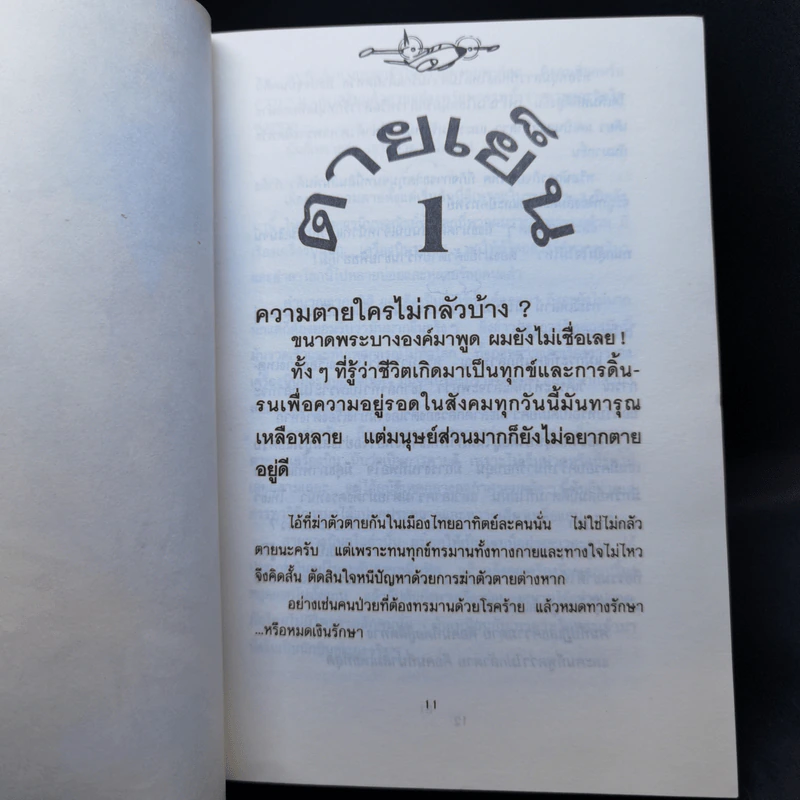 ตายเฮี้ยน
1
ความตายใครไม่กลัวบ้าง ?
ขนาดพระบางองค์มาพูด ผมยังไม่เชื่อเลย !
ทั้ง ๆ ที่รู้ว่าชีวิตเกิดมาเป็นทุกข์และการดิ้น-
รนเพื่อความอยู่รอดในสังคมทุกวันนี้มันทารุณ
เหลือหลาย แต่มนุษย์ส่วนมากก็ยังไม่อยากตาย
อยู่ดี
ไอ้ที่ฆ่าตัวตายกันในเมืองไทยอาทิตย์ละคนนั่น ไม่ใช่ไม่กลัว
ตายนะครับ แต่เพราะทนทุกข์ทรมานทั้งทางกายและทางใจไม่ไหว
จึงคิดสั้น ตัดสินใจหนีปัญหาด้วยการฆ่าตัวตายต่างหาก
อย่างเช่นคนป่วยที่ต้องทรมานด้วยโรคร้าย แล้วหมดทางรักษา
...หรือหมดเงินรักษา
11